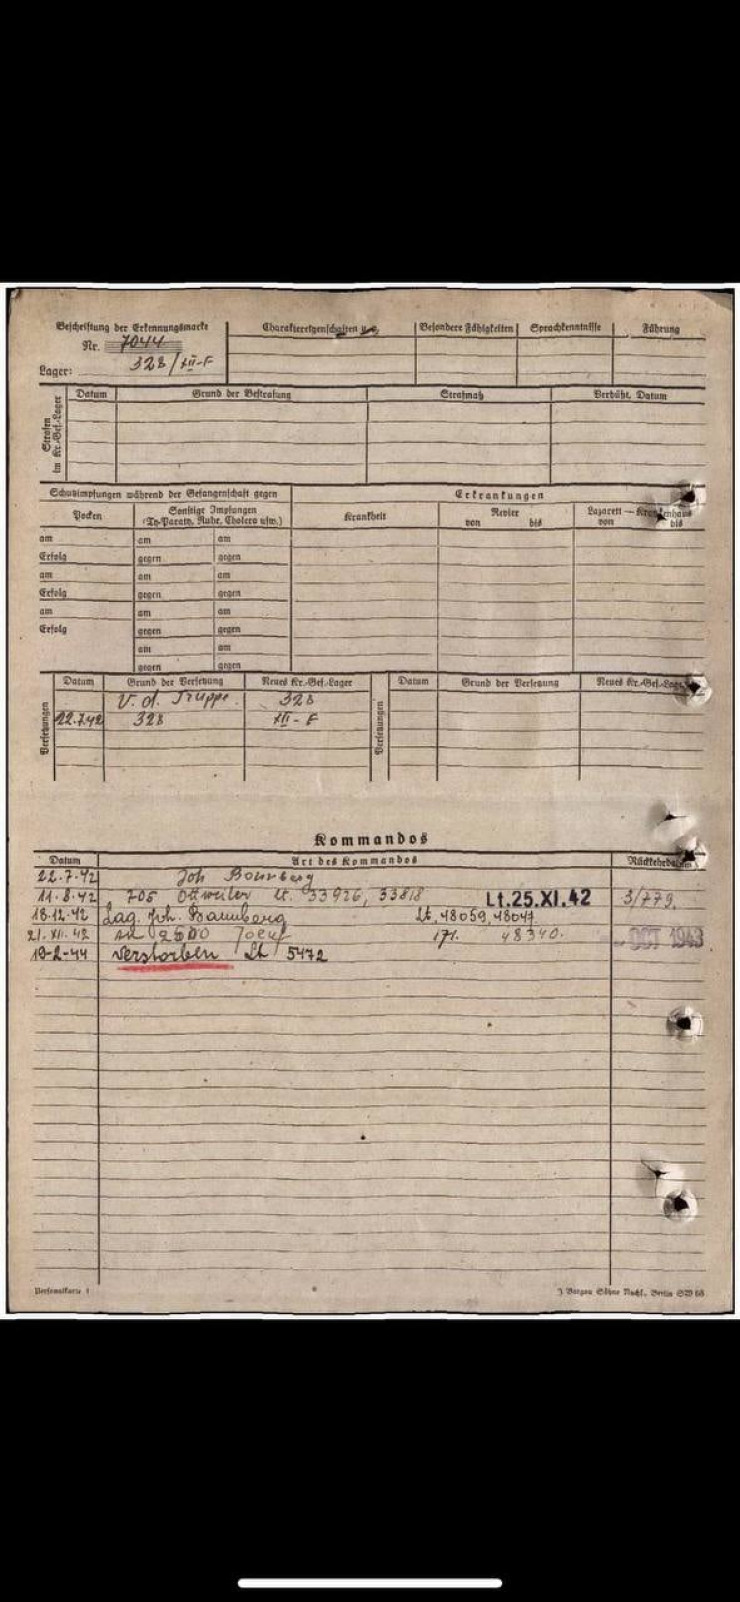 Beschriftung der Erkennungsmarke
Nr. 7044
Lager: 328/XII-F
Charaktereigenschaften
Besondere Fähigkeiten
Sprachkenntnisse
Führung
Strafen im Kr.-Gef.-Lager
Datum
Grund der Bestrafung
Strafmaß
Verbüßt, Datum
Schutzimpfungen während der Gefangenschaft gegen
Erkrankungen
Pocken
Sonstige Impfungen
(Ty-Paraty, Ruhr, Cholera usw.)
Krankheit
Revier
von bis
Lazarett — Krankenhaus
von bis
am am am
Erfolg gegen gegen
am am am
Erfolg gegen gegen
am am am
Erfolg gegen gegen
am am
gegen gegen
Versetzungen
Datum Grund der Versetzung Neues Kr.-Gef.-Lager
V. d. Truppe 328
22.7.42 328 XII-F
Versetzungen
Datum Grund der Versetzung Neues Kr.-Gef.-Lager
Kommandos
Datum Art des Kommandos
22.7.42 Joh
11.8.42 705 Ottweiler lt. 33926, 33818 Lt.25.XI.42 3/779.
18.12.42 Lag. Joh. Bannberg Lt. 48059, 48047
21.XII.42 2600 Joeuf 48340. OCT 1943
19-2-44 Verstorben Lt 5472
Personalkarte I
Berlin SW 68